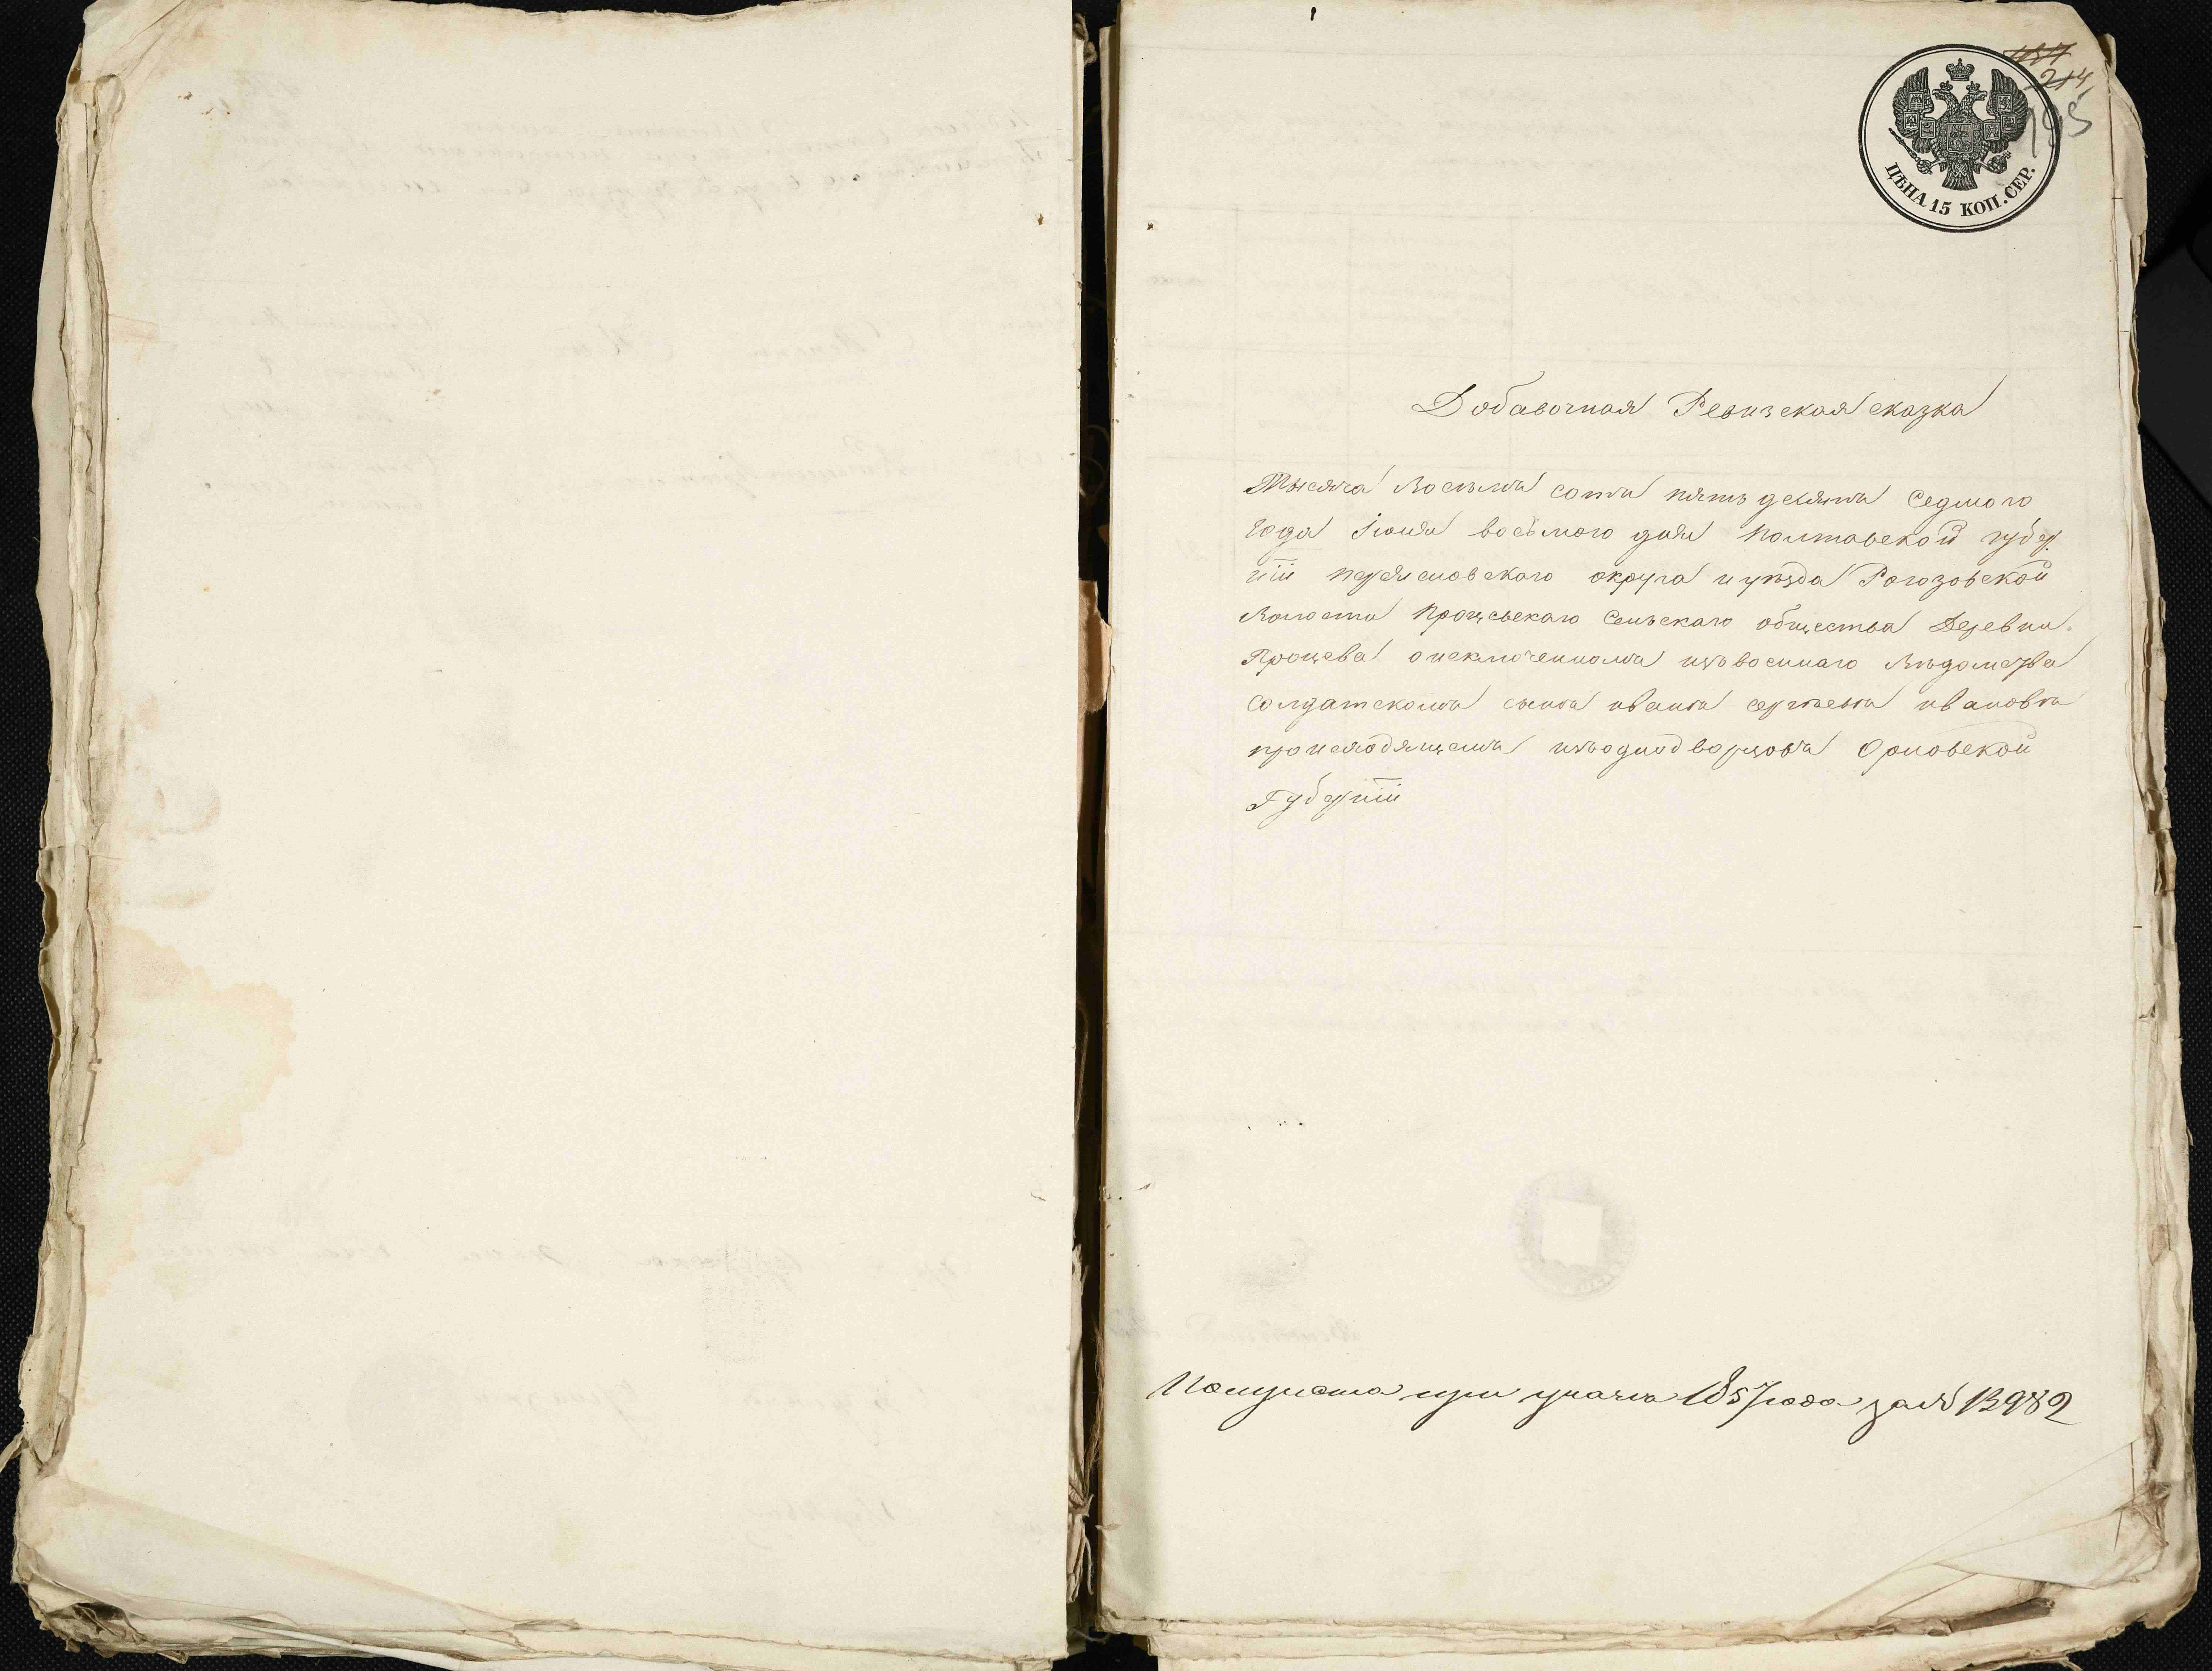 157
214
195
ЦѢНА 15 КОП. СЕР.
Добавочная Ревизская сказка
Тысяча Восемъ сотъ пять десятъ Седмого
Года Іюня восьмого дня Полтавской губер
ніи переясловскаго округа и уѣзда Рогозовской
Волости Процевскаго Сельскаго общества Деревни
Процева о исключенномъ изъ военнаго Вѣдомства
Солдатскомъ сынѣ иванѣ сергѣевѣ ивановѣ
происходящемъ изъ однодворцовъ Орловской
Губерніи
при указѣ 1857 года за № 13982